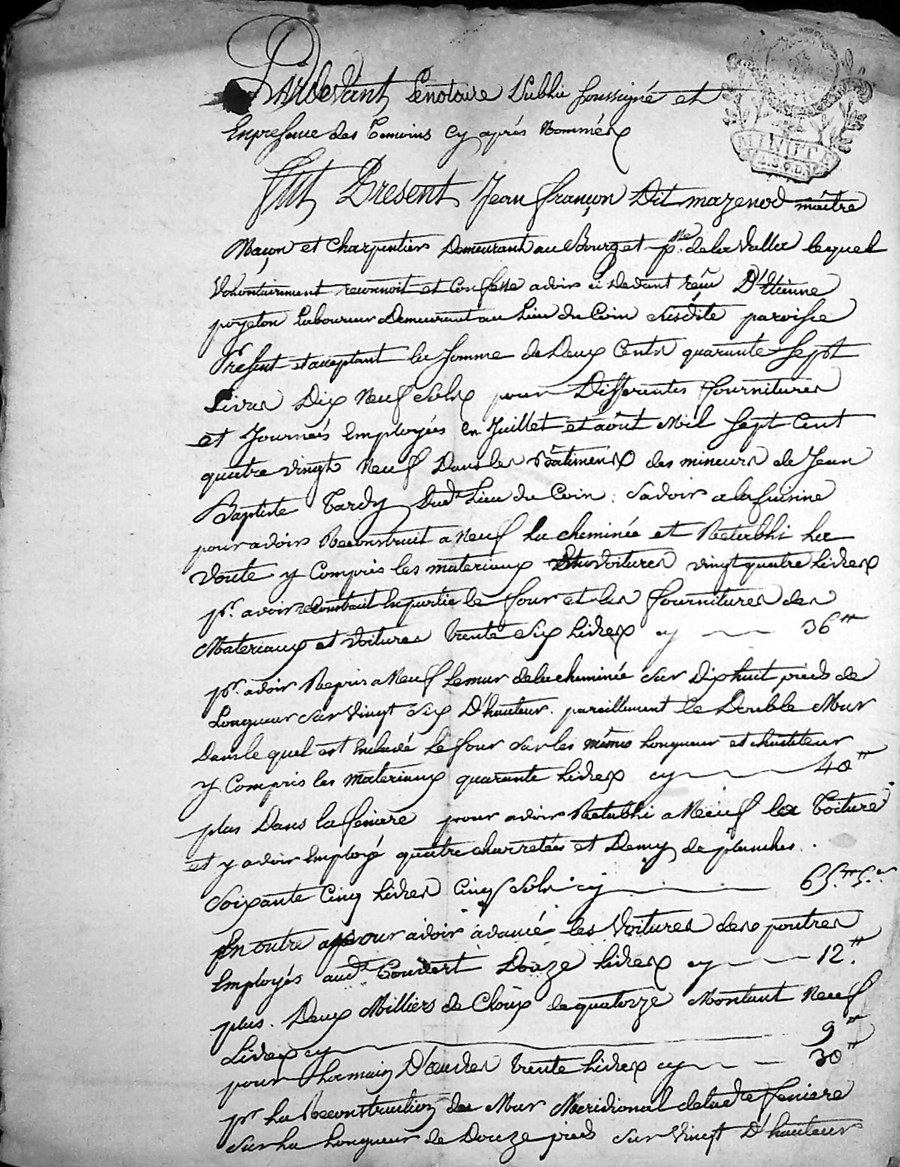 Pardevant Le notaire Public soussigné et
En presence des Temoins Cy après Nommés
MINUTE
Fut Present Jean françon Dit mazenod maître
Maçon et Charpentier Demeurant au Bourg et psse de la Valla lequel
Volontairement reconnoit et Confesse avoir ci Devant reçu D'Etienne
poyeton Laboureur Demeurant au Lieu du Coin susdite paroisse
Present et acceptant la Somme de Deux Cents quarante Sept
Livres Dix Neuf Sols pour Differentes fournitures
et Journées Employées en Juillet et aout Mil Sept Cent
quatre vingt Neuf Dans les Bâtiments des mineurs de Jean
Baptiste Tardy Sud. Lieu du Coin. Savoir a la Cuisine
pour avoir Reconstruit a Neuf La cheminée et Retabli La
Voute y Compris les materiaux voitures vingt quatre Livres
pr. avoir reconstruit En partie le four et les fournitures des
Materiaux et voitures trente Six Livres cy 36tt
pr. avoir Repris a Neuf Le mur de la cheminée Sur Dixhuit pieds de
Longueur Sur Vingt Six D'hauteur. pareillement le Double Mur
Dans le quel est Enclavé Le four Sur les mêmes Longueur et hauteur
y Compris les materiaux quarante Livres cy 40tt
plus Dans la feniere pour avoir Retabli a Neuf la Toiture
et y avoir Employé quatre charretées et Demy de planches.
Soixante Cinq Livres Cinq Sols cy 65tt 5s
En outre pour avoir avancé les Voitures des poutres
Employés aud. Couvert Douze Livres cy 12tt
plus. Deux Milliers de Cloux le quatorze Montant Neuf
Livres cy 9tt
pour La main D'œuvre trente Livres cy 30tt
pr. La Reconstruction du Mur Meridional de lade feniere
Sur La Longueur de Douze pieds Sur Vingt D'hauteur